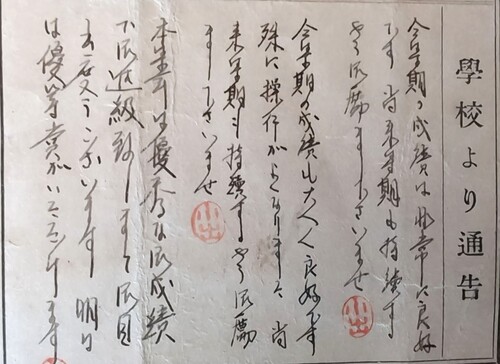 學校より通告
今学期の成績は非常に良好
です 尚来学期も持続する
やう御励まし下さいませ
今学期の成績も大へん良好です
殊に操行がよくなりました 尚
来学期も持続するやう御励
まし下さいませ
本学年は優秀な御成績
で御進級致しまして御目
出度うございます
は優等賞がいただけます
小出
小出